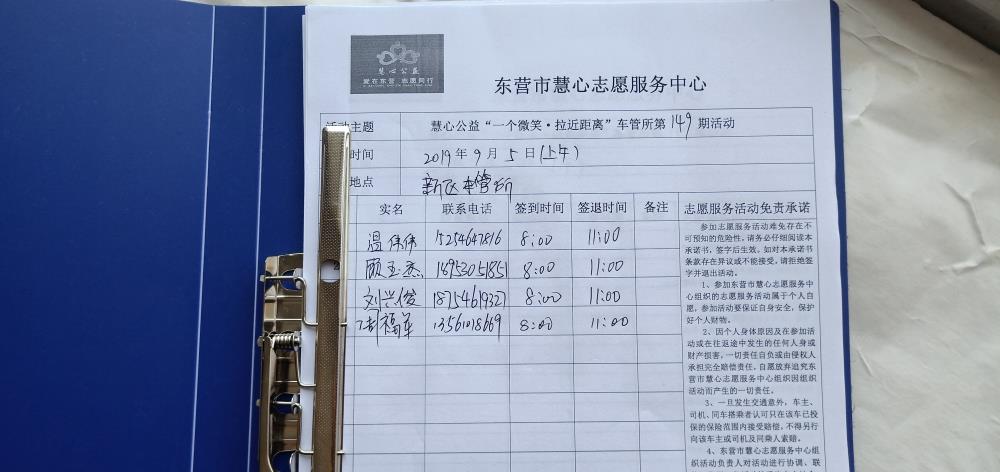 慧心公益
爱在东营 志愿同行
东营市慧心志愿服务中心
活动主题 慧心公益“一个微笑·拉近距离”车管所第149期活动
时间 2019年9月5日(上午)
地点 新区车管所
实名 联系电话 签到时间 签退时间 备注 志愿服务活动免责承诺
温伟伟 15254647816 8:00 11:00
顾玉杰 8:00 11:00
刘兴俊 18754619327 8:00 11:00
福军 13561018669 8:00 11:00
参加志愿服务活动难免存在不
可预知的危险性,请务必仔细阅读本
承诺书,签字后生效。如对本承诺书
条款存在异议或不能接受,请拒绝签
字并退出活动。
1、参加东营市慧心志愿服务中
心组织的志愿服务活动属于个人自
愿,参加活动要保证自身安全,保护
好个人财物。
2、因个人身体原因及在参加活
动或在往返途中发生的任何人身或
财产损害,一切责任自负或由侵权人
承担完全赔偿责任。自愿放弃追究东
营市慧心志愿服务中心组织因组织
活动而产生的一切责任。
3、一旦发生交通意外,车主、
司机、同车搭乘者认可只在该车已投
保的保险范围内接受赔偿,不得另行
向该车主或司机及同乘人索赔。
4、东营市慧心志愿服务中心组
织活动负责人对活动进行协调、联